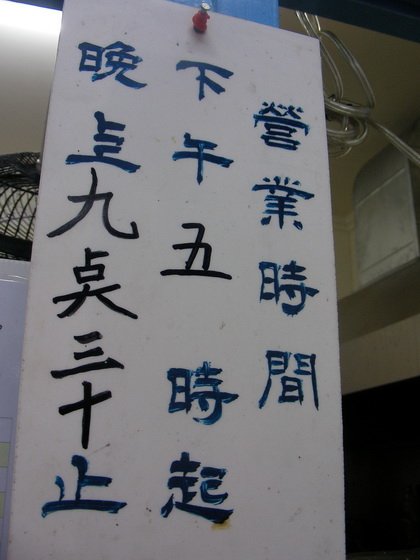 營業時間
下午五時起
晚上九奌三十止